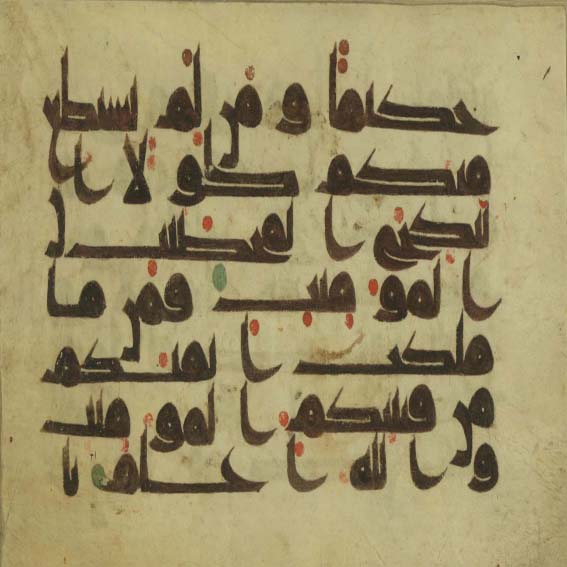 حكيما و من لم يستطع
منكم طولا ا
ن ينكح ا لمحصنت
ا لمومنت فمن ما
ملكت ا يمنكم
من فتيتكم ا لمومنت
و ا لله ا علم با